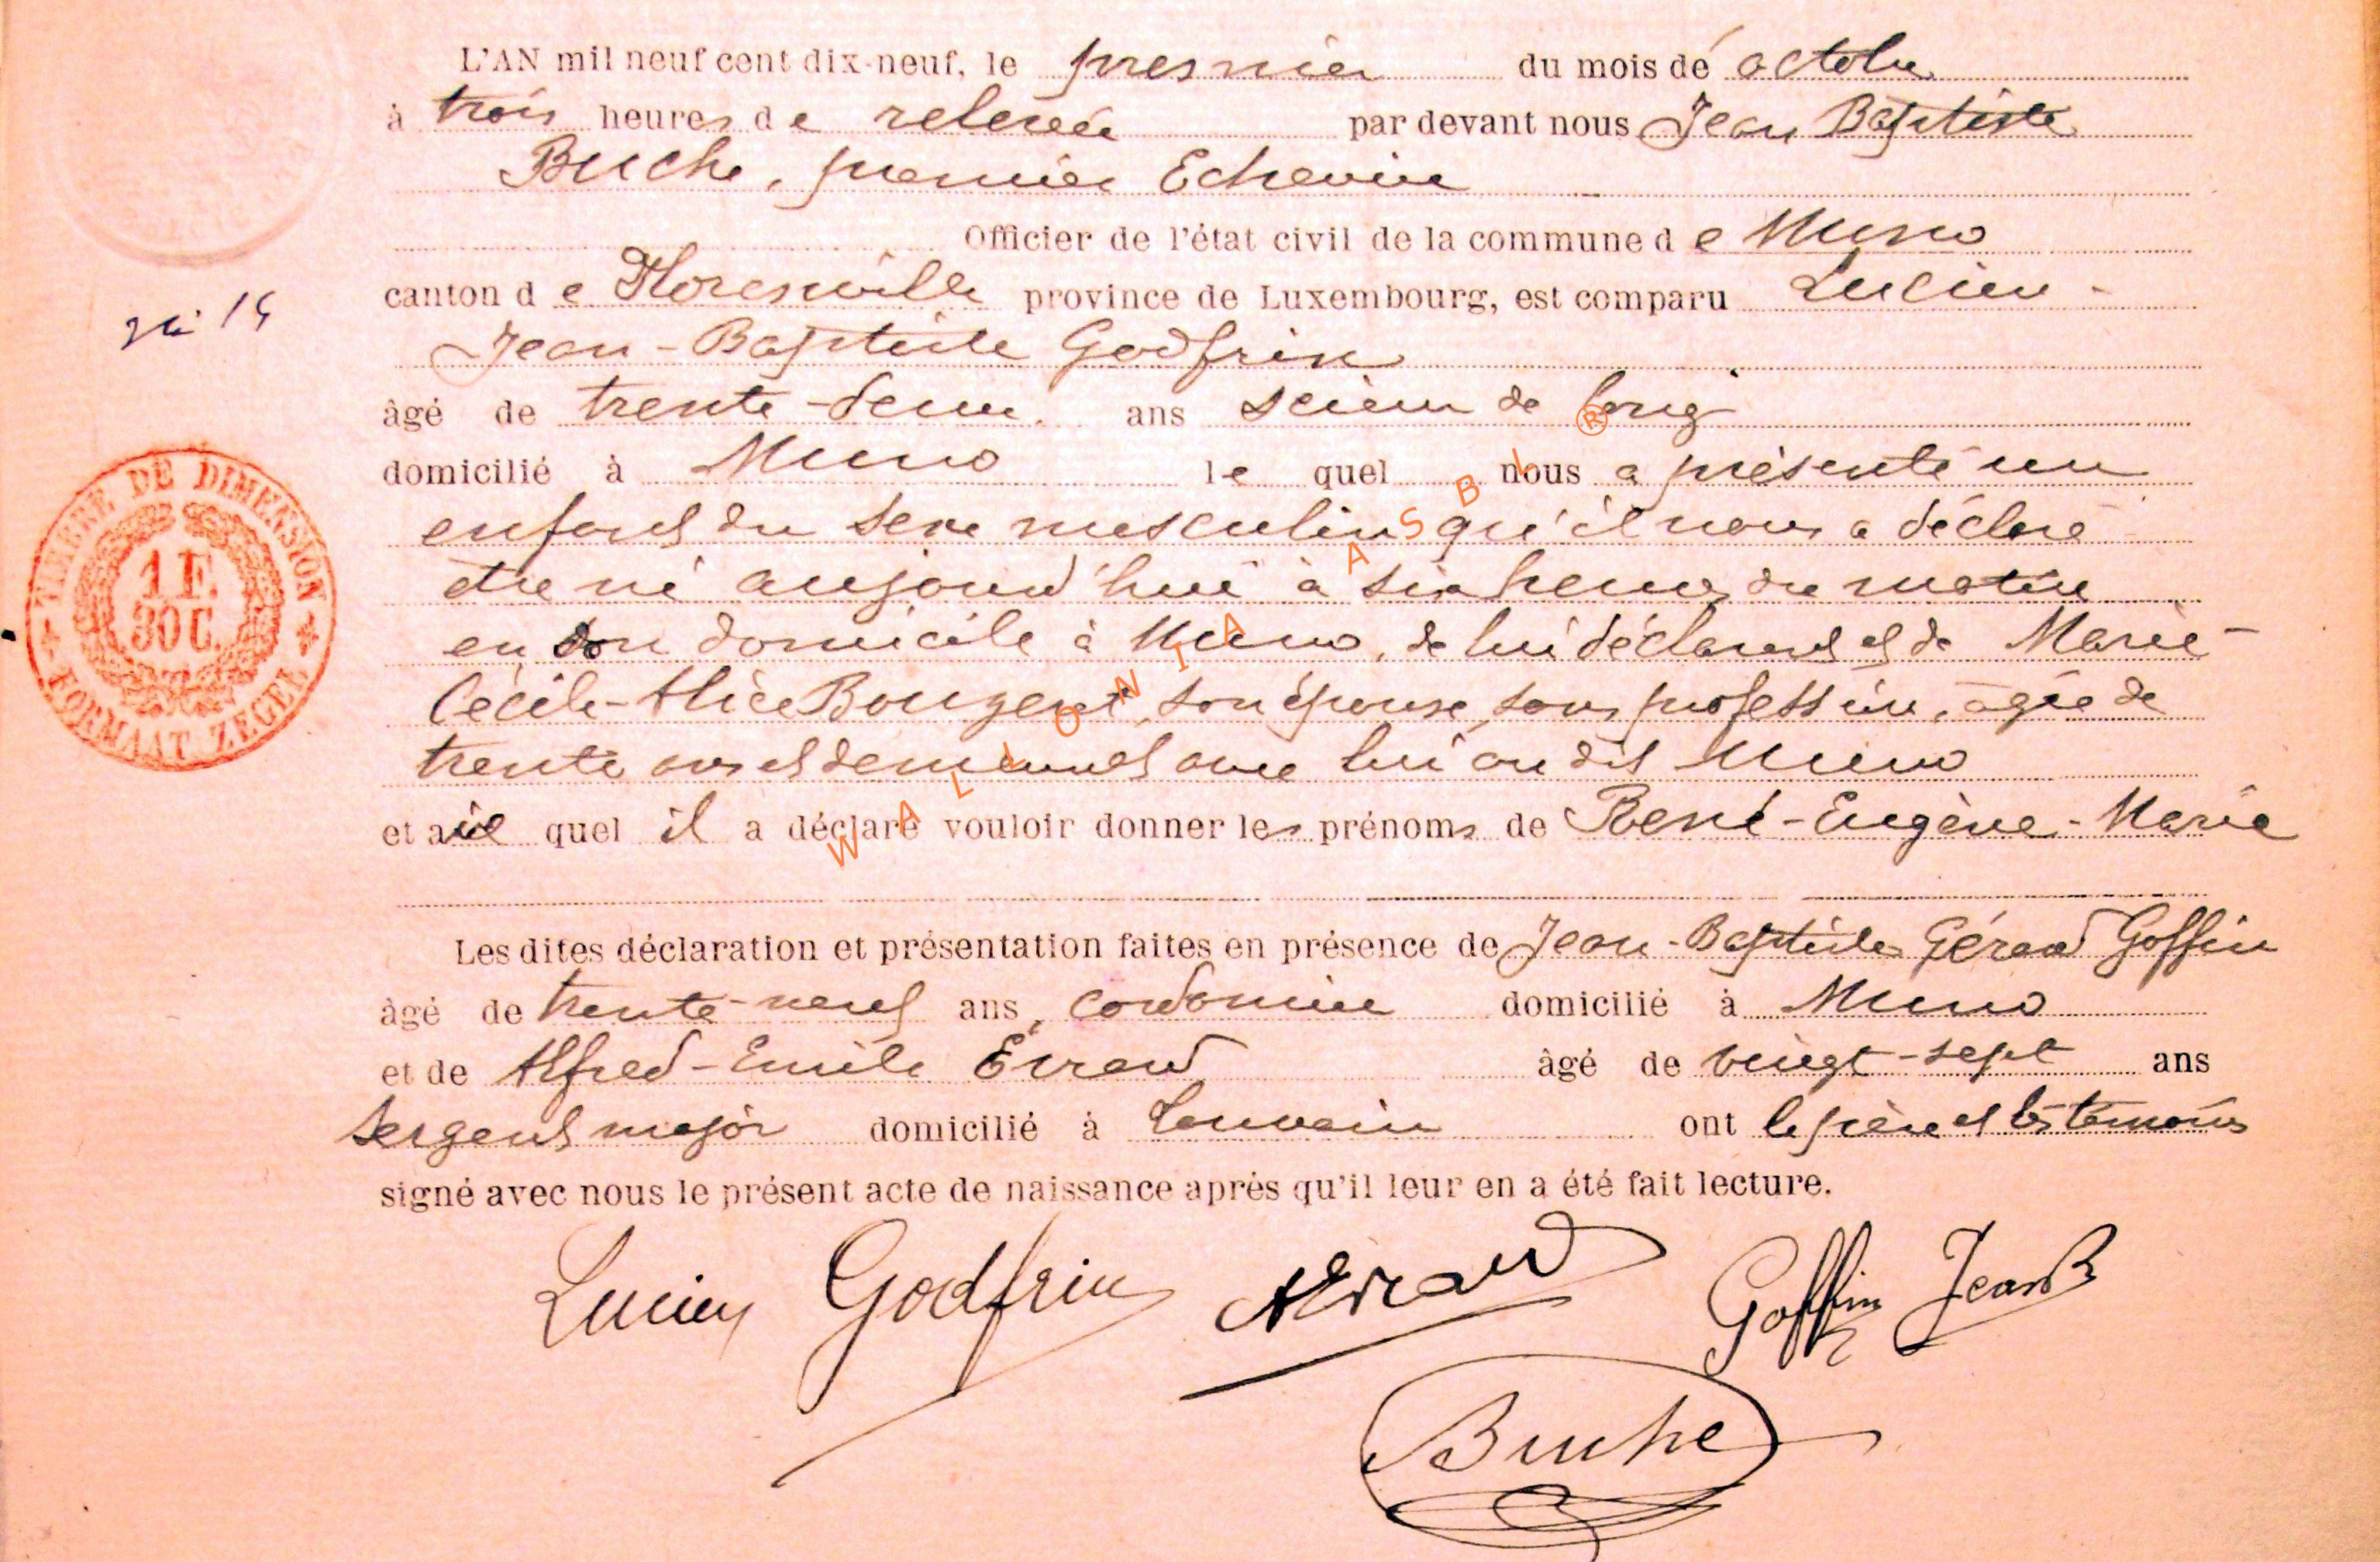 L'AN mil neuf cent dix-neuf, le premier du mois de octobre
à trois heures de relevée par devant nous Jean Baptiste
Buche, premier Echevin
Officier de l'état civil de la commune de Muno
canton de Florenville province de Luxembourg, est comparu Lucien-
Jean-Baptiste Godfrin
âgé de trente-deux ans scieur de long
domicilié à Muno lequel nous a présenté un
enfant du sexe masculin qu'il nous a déclaré
être né aujourd'hui à six heures du matin
en son domicile à Muno, de lui déclarant et de Marie-
Cécile-Alice Bouzert, son épouse, sans profession, âgée de
trente ans et demeurant avec lui au dit Muno
et auquel il a déclaré vouloir donner les prénoms de René-Eugène-Marie
Les dites déclaration et présentation faites en présence de Jean-Baptiste Gérard Goffin
âgé de trente-neuf ans, cordonnier domicilié à Muno
et de Alfred-Emile Evrard âgé de vingt-sept ans
sergent major domicilié à Louvain ont le père et les témoins
signé avec nous le présent acte de naissance après qu'il leur en a été fait lecture.
Lucien Godfrin AEvrard Goffin JeanB
Buche
TIMBRE DE DIMENSION
1 F.
30 C.
FORMAAT ZEGEL
WALLONIA ASBL ®